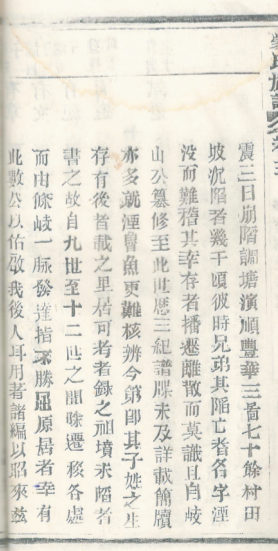 震三日崩陷調塘濱順豐華三啚七十餘村田
坡沉陷者幾千頃彼時兄弟其陷亡者名字湮
没而難稽其幸存者播遷離散而莫譏且自岐
山公纂修至此世歷三紀譜牒未及詳載簡牘
亦多就湮魯魚更難核辨今第即其子姓之生
存有後者載之里居可考者錄之祖墳未陷者
書之故自九世至十二世之間除遷移各處
而由餘岐一脈發達指不勝屈原居者幸有
此數公以佑啟我後人耳用著諸編以昭來茲
氏族譜